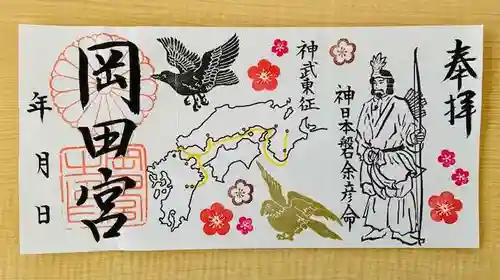 奉拝
神武東征
神日本磐余彦命
岡田宮
年月日